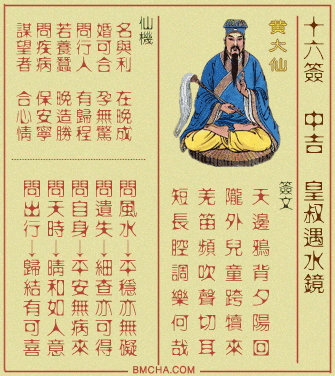 十六簽 中吉 皇叔遇水鏡
黃大仙
簽文
天邊鴉背夕陽回
隴外兒童跨犢來
羌笛頻吹聲切耳
短長腔調樂何哉
仙機
名與利 在晚成
婚可合 孕無驚
問行人 有歸程
若養蠶 晚造勝
問疾病 保安寧
謀望者 合心情
問風水→平穩亦無礙
問遺失→細查亦可得
問自身→平安無病來
問天時→晴和如人意
問出行→歸結有可喜
BMCHA.COM